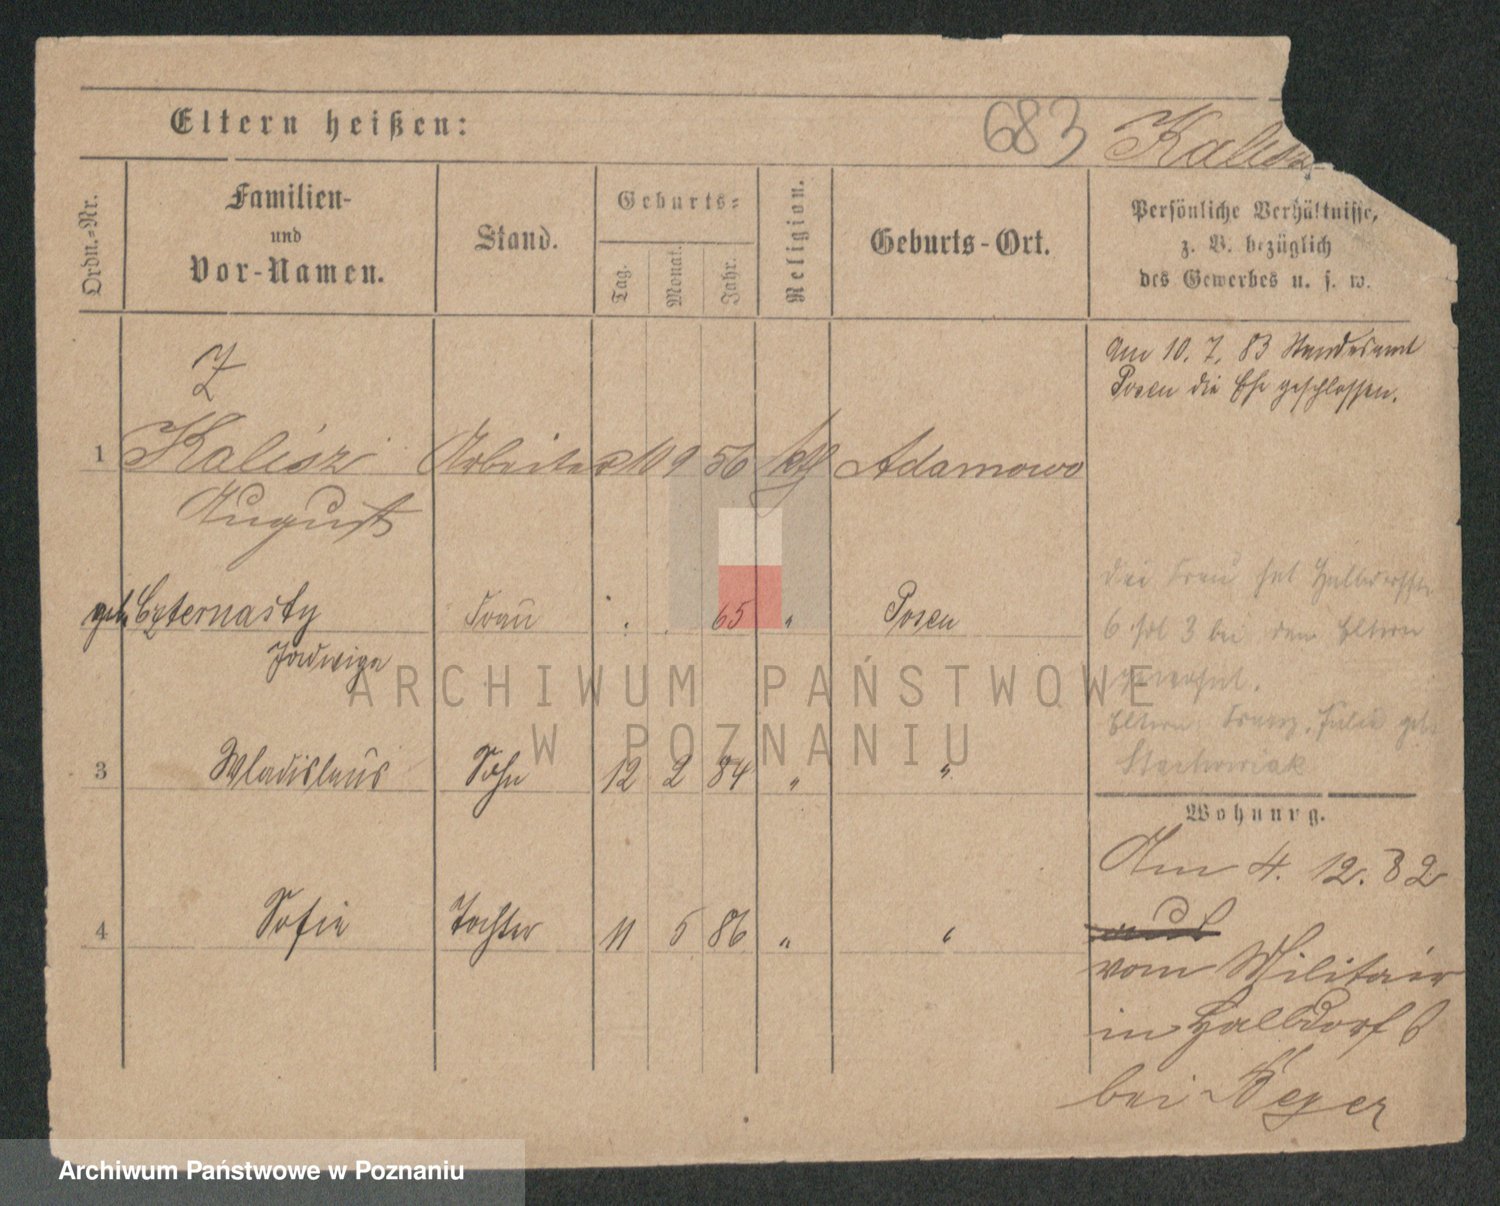 Eltern heißen:
683 Kalisz
Ordn.-Nr.
Familien-
und
Vor-Namen.
Stand.
Geburts-
Tag.
Monat.
Jahr.
Religion.
Geburts-Ort.
Persönliche Verhältnisse,
z. B. bezüglich
des Gewerbes u. s. w.
Am 10. 7. 83 Standesamt
Posen die Ehe geschlossen.
1 Kalisz Arbeiter 10 9 56 kth Adamowo
August
geb. Czternasty Frau 65 " Posen
Jadwiga
Die Frau hat Halbdorfstr
6 bei den Eltern
gewohnt.
Eltern: Franz, geb.
3 Wladislaus Sohn 12 2 84 " "
Wohnung.
Am 4. 12. 82
4 Sofie Tochter 11 5 86 " "
vom Militair
in Halbdorf 6
bei
ARCHIWUM PAŃSTWOWE
W POZNANIU
Archiwum Państwowe w Poznaniu